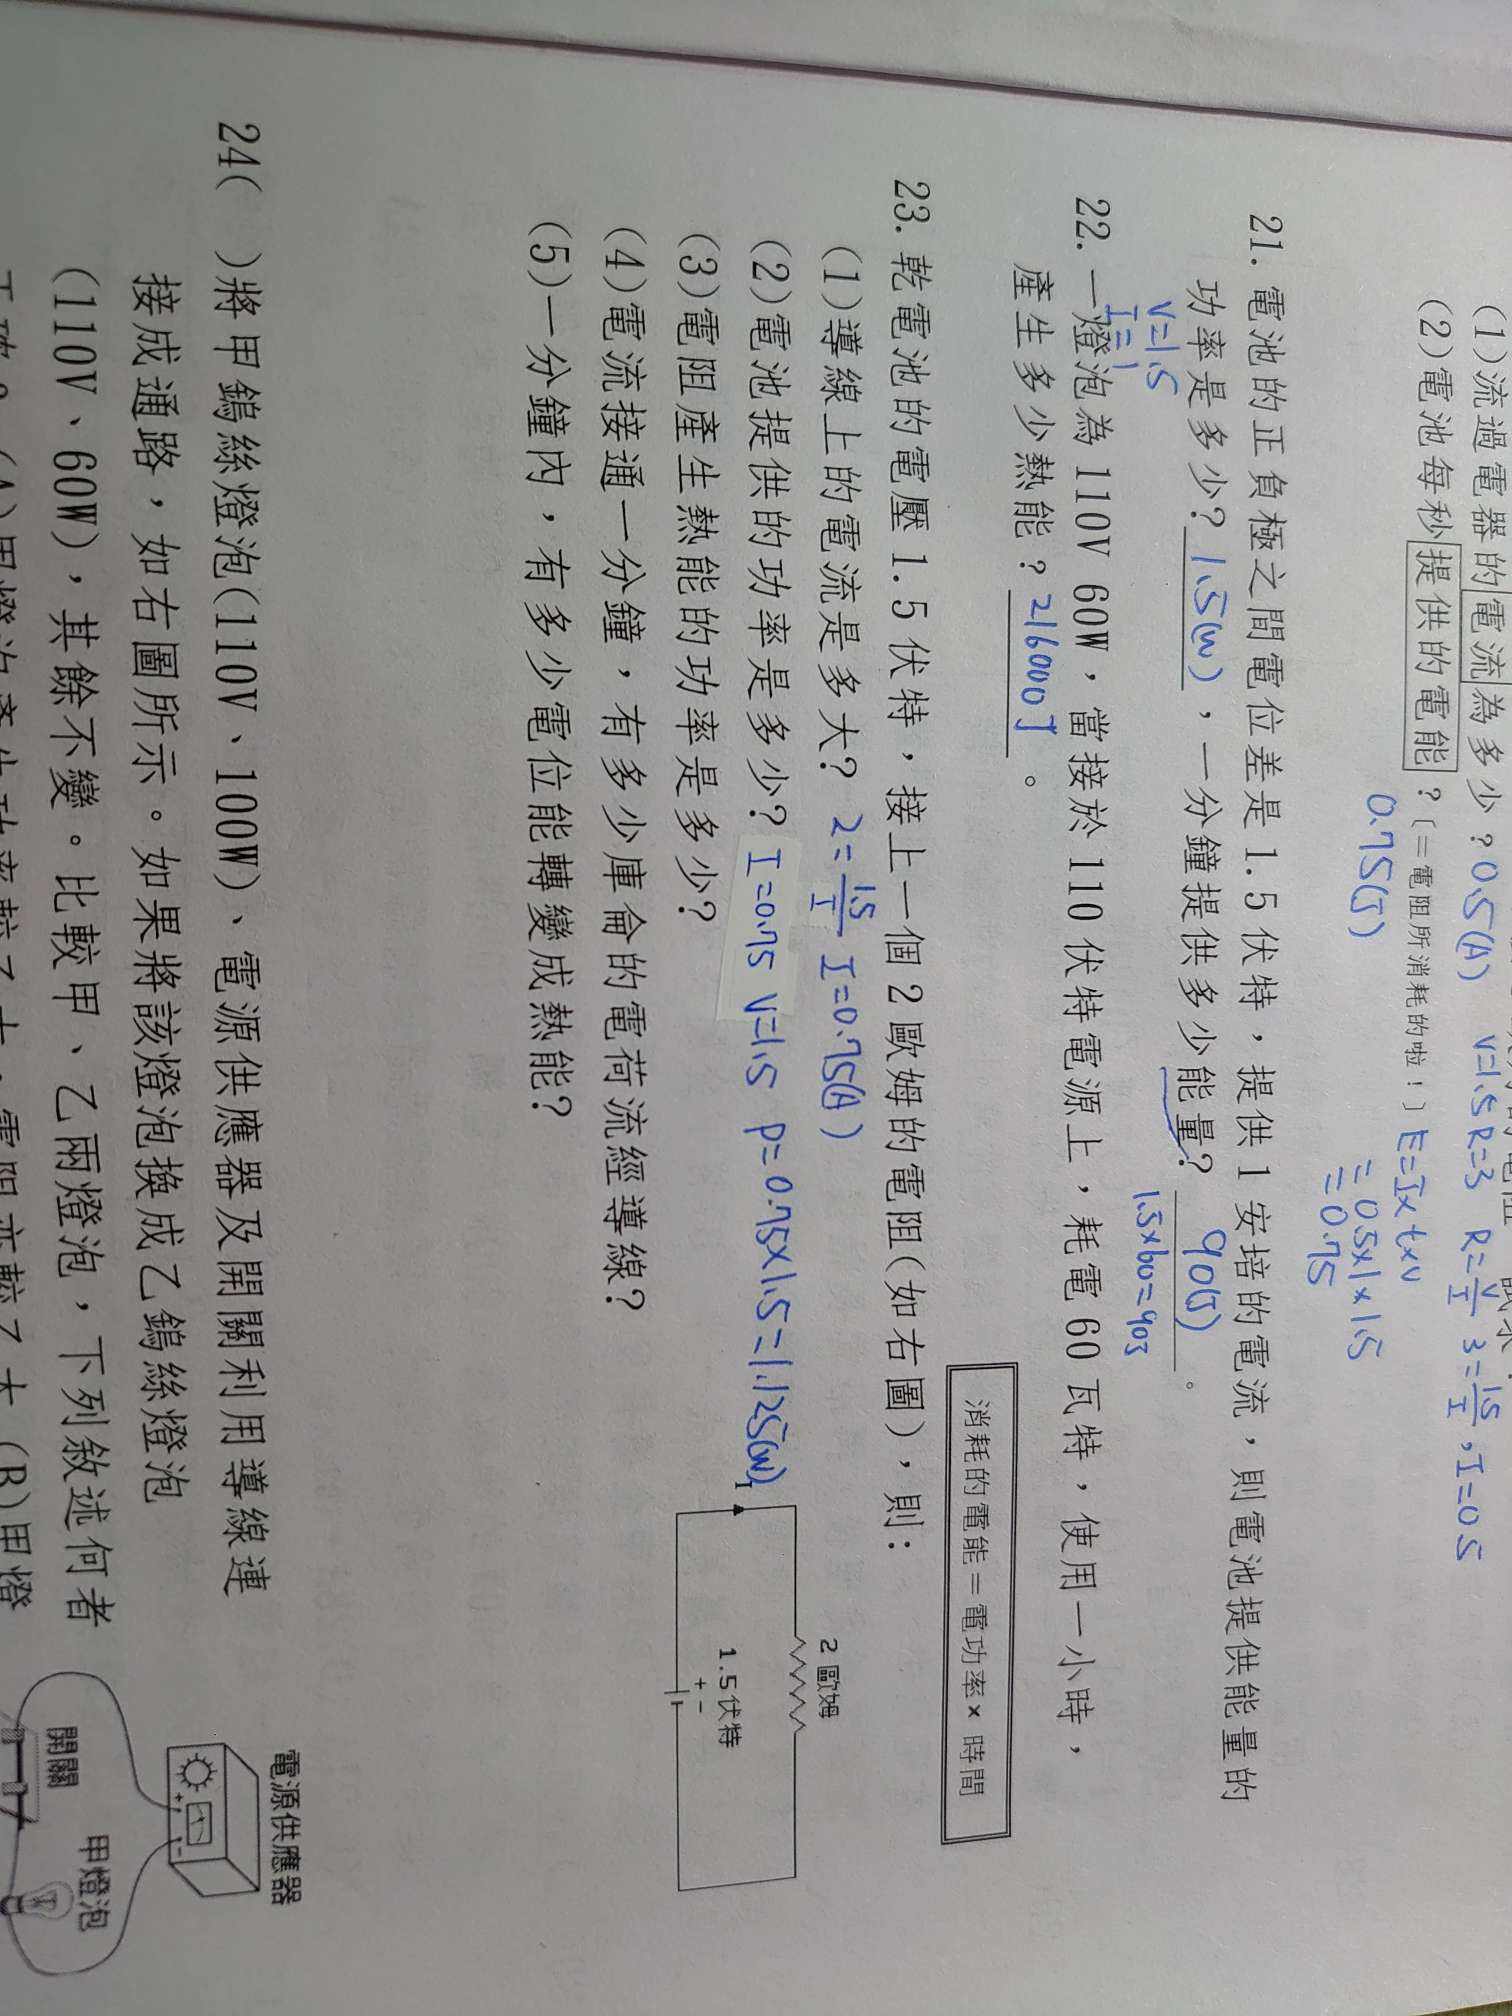 (1)流過電器的電流為多少？0.5(A) V=1.5 R=3 R=V/I 3=1.5/I , I=0.5
(2)電池每秒提供的電能？〔=電阻所消耗的啦！〕E=I×t×V
=0.5×1×1.5
=0.75
0.75(J)
21. 電池的正負極之間電位差是 1.5 伏特，提供 1 安培的電流，則電池提供能量的
功率是多少？1.5(W)，一分鐘提供多少能量？ 90(J)。
V=1.5
I=1
1.5×60=90J
22. 一燈泡為 110V 60W，當接於 110 伏特電源上，耗電 60 瓦特，使用一小時，
產生多少熱能？216000J。
消耗的電能＝電功率×時間
23. 乾電池的電壓 1.5 伏特，接上一個 2 歐姆的電阻(如右圖)，則：
(1)導線上的電流是多大？ 2=1.5/I I=0.75(A)
(2)電池提供的功率是多少？I=0.75 V=1.5 P=0.75×1.5=1.125(W)
(3)電阻產生熱能的功率是多少？
(4)電流接通一分鐘，有多少庫侖的電荷流經導線？
(5)一分鐘內，有多少電位能轉變成熱能？
2 歐姆
I
1.5伏特
+ -
24( )將甲鎢絲燈泡(110V、100W)、電源供應器及開關利用導線連
接成通路，如右圖所示。如果將該燈泡換成乙鎢絲燈泡
(110V、60W)，其餘不變。比較甲、乙兩燈泡，下列敘述何者
(A)甲燈泡產生功率較乙大，電阻亦較乙大 (B)甲燈
電源供應器
+ -
開關
甲燈泡